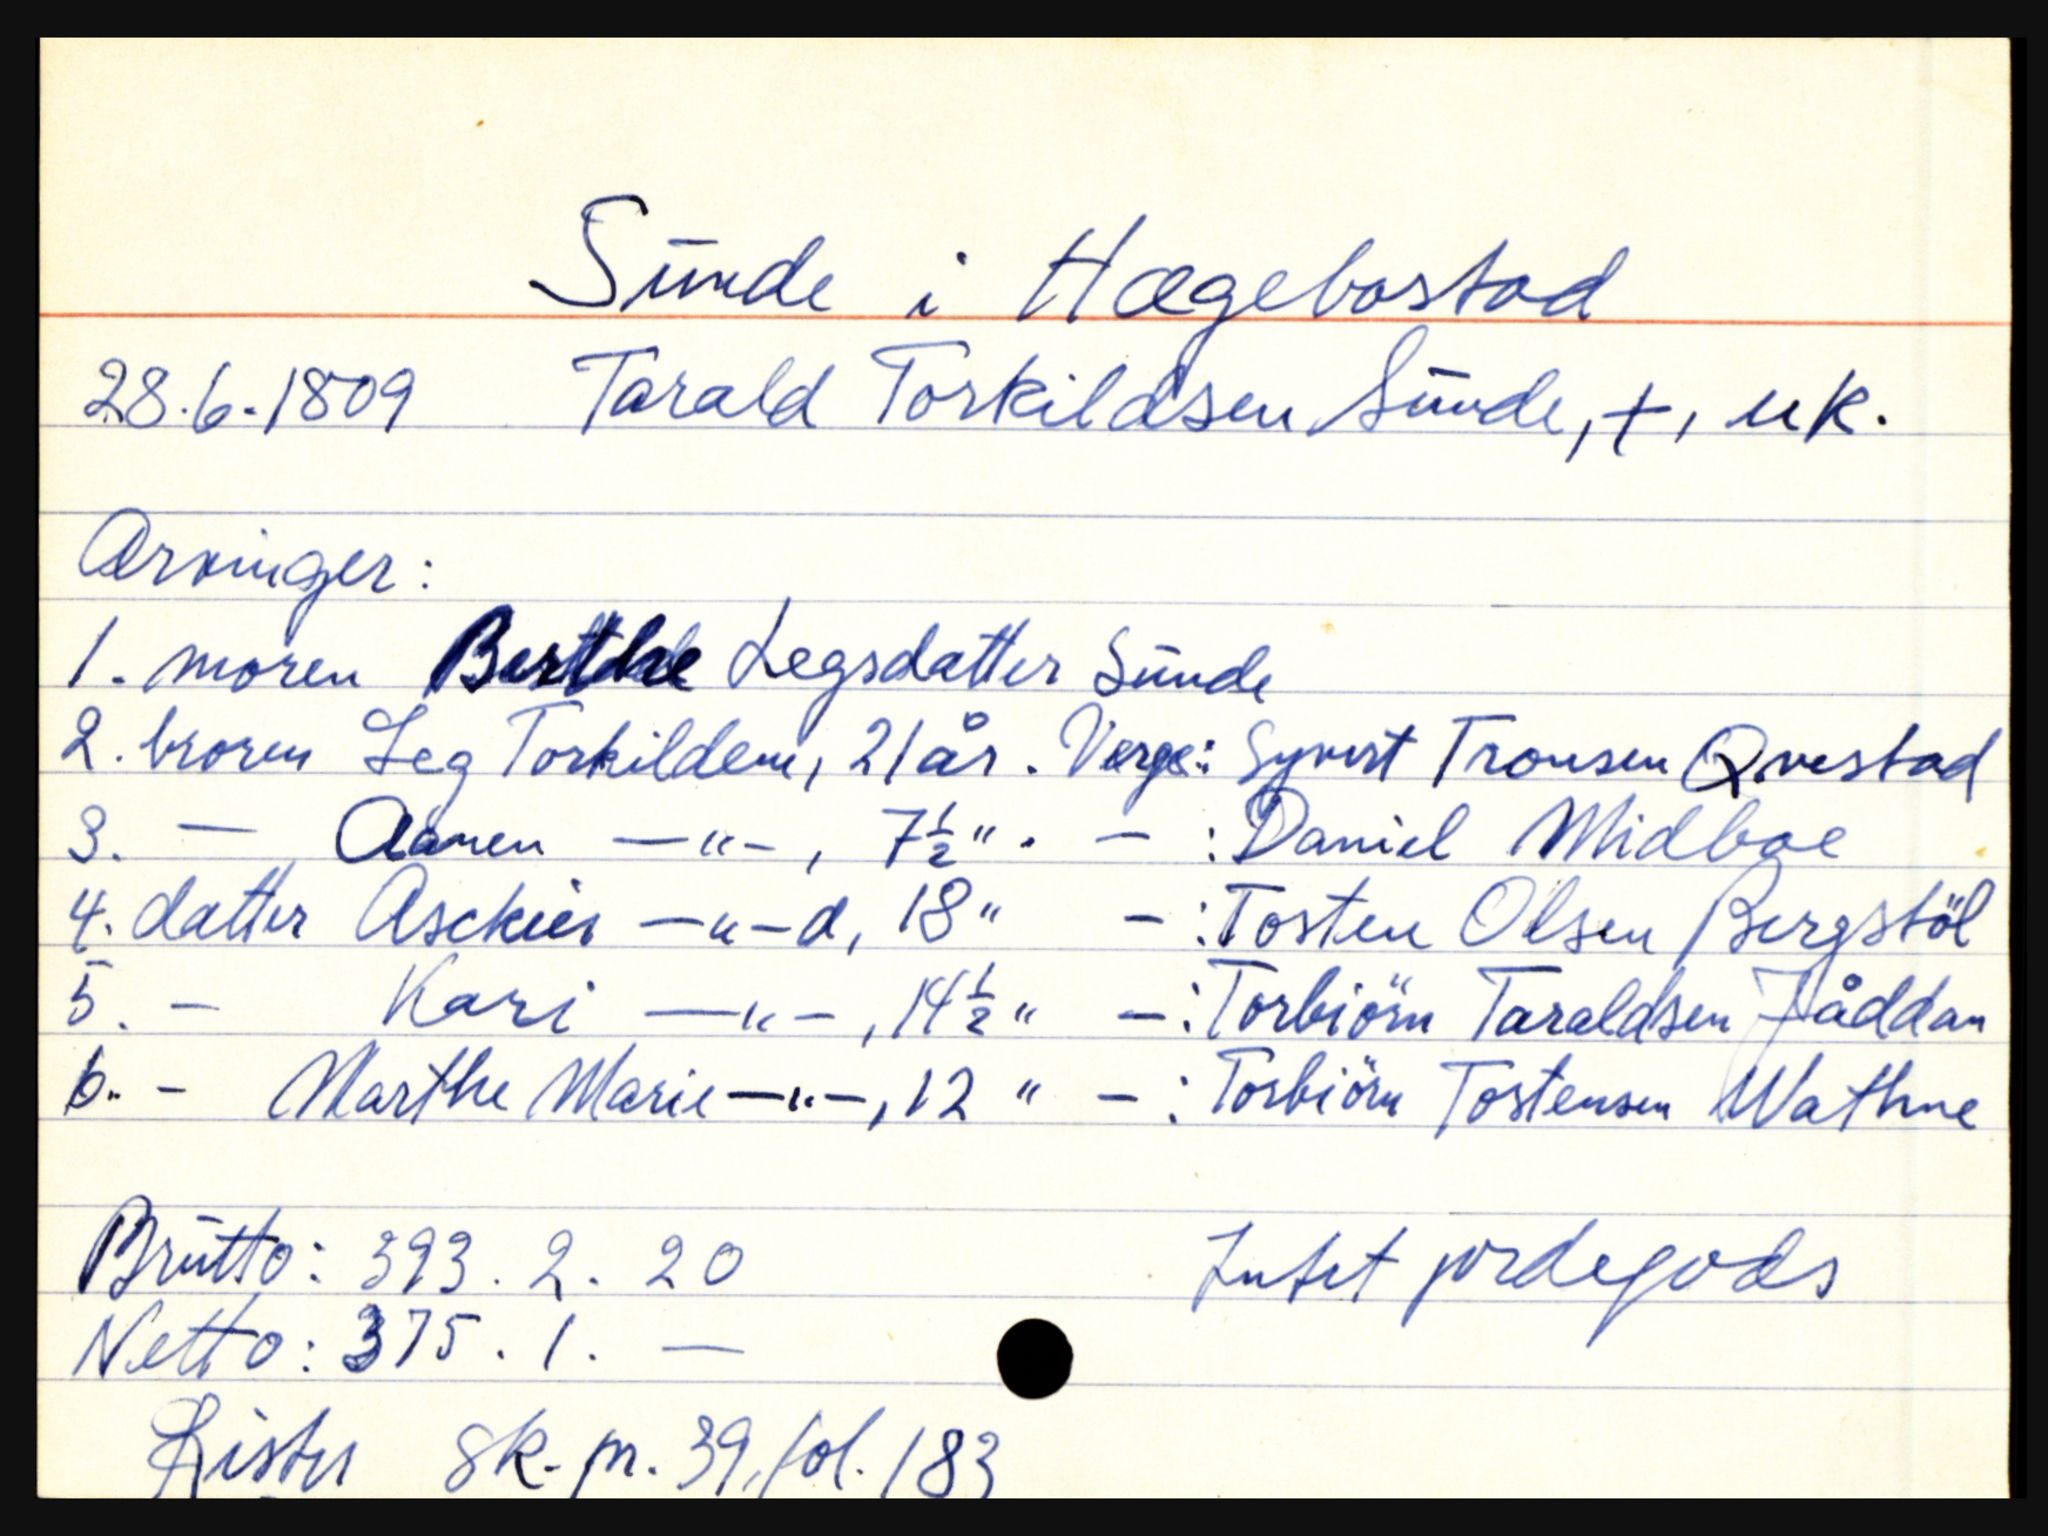 Sunde i Hægebostad
28.6.1809 Tarald Torkildsen Sunde, +, uk.
Arvinger:
1. moren Berthe Legsdatter Sunde
2. broren Leg Torkildsen, 21 år. Verge: Syvert Tronsen Qvestad
3. — Aanen —"—, 7½ ". — : Daniel Midboe
4. datter Asckier —"—d, 18 " — : Tosten Olsen Bergstöl
5. — Kari —"—, 14½ " — : Torbiörn Taraldsen Jåddan
6. - Marthe Marie —"—, 12 " — : Torbiörn Tostensen Wathne
Brutto: 393. 2. 20 Intet jordegods
Netto: 375. 1. —
Lister sk. pr. 39, fol. 183